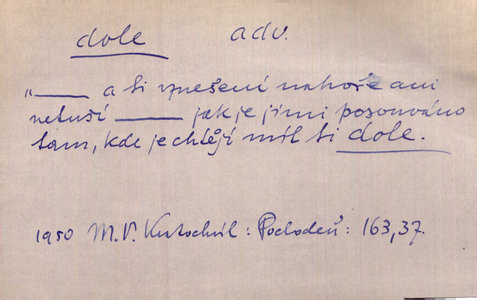 dole adv.
„—— a ti vznešení nahoře ani
netuší —— jak je jimi posunováno
tam, kde je chtějí mít ti dole.
1950 M. V. Kratochvíl: Pochodeň: 163,37.